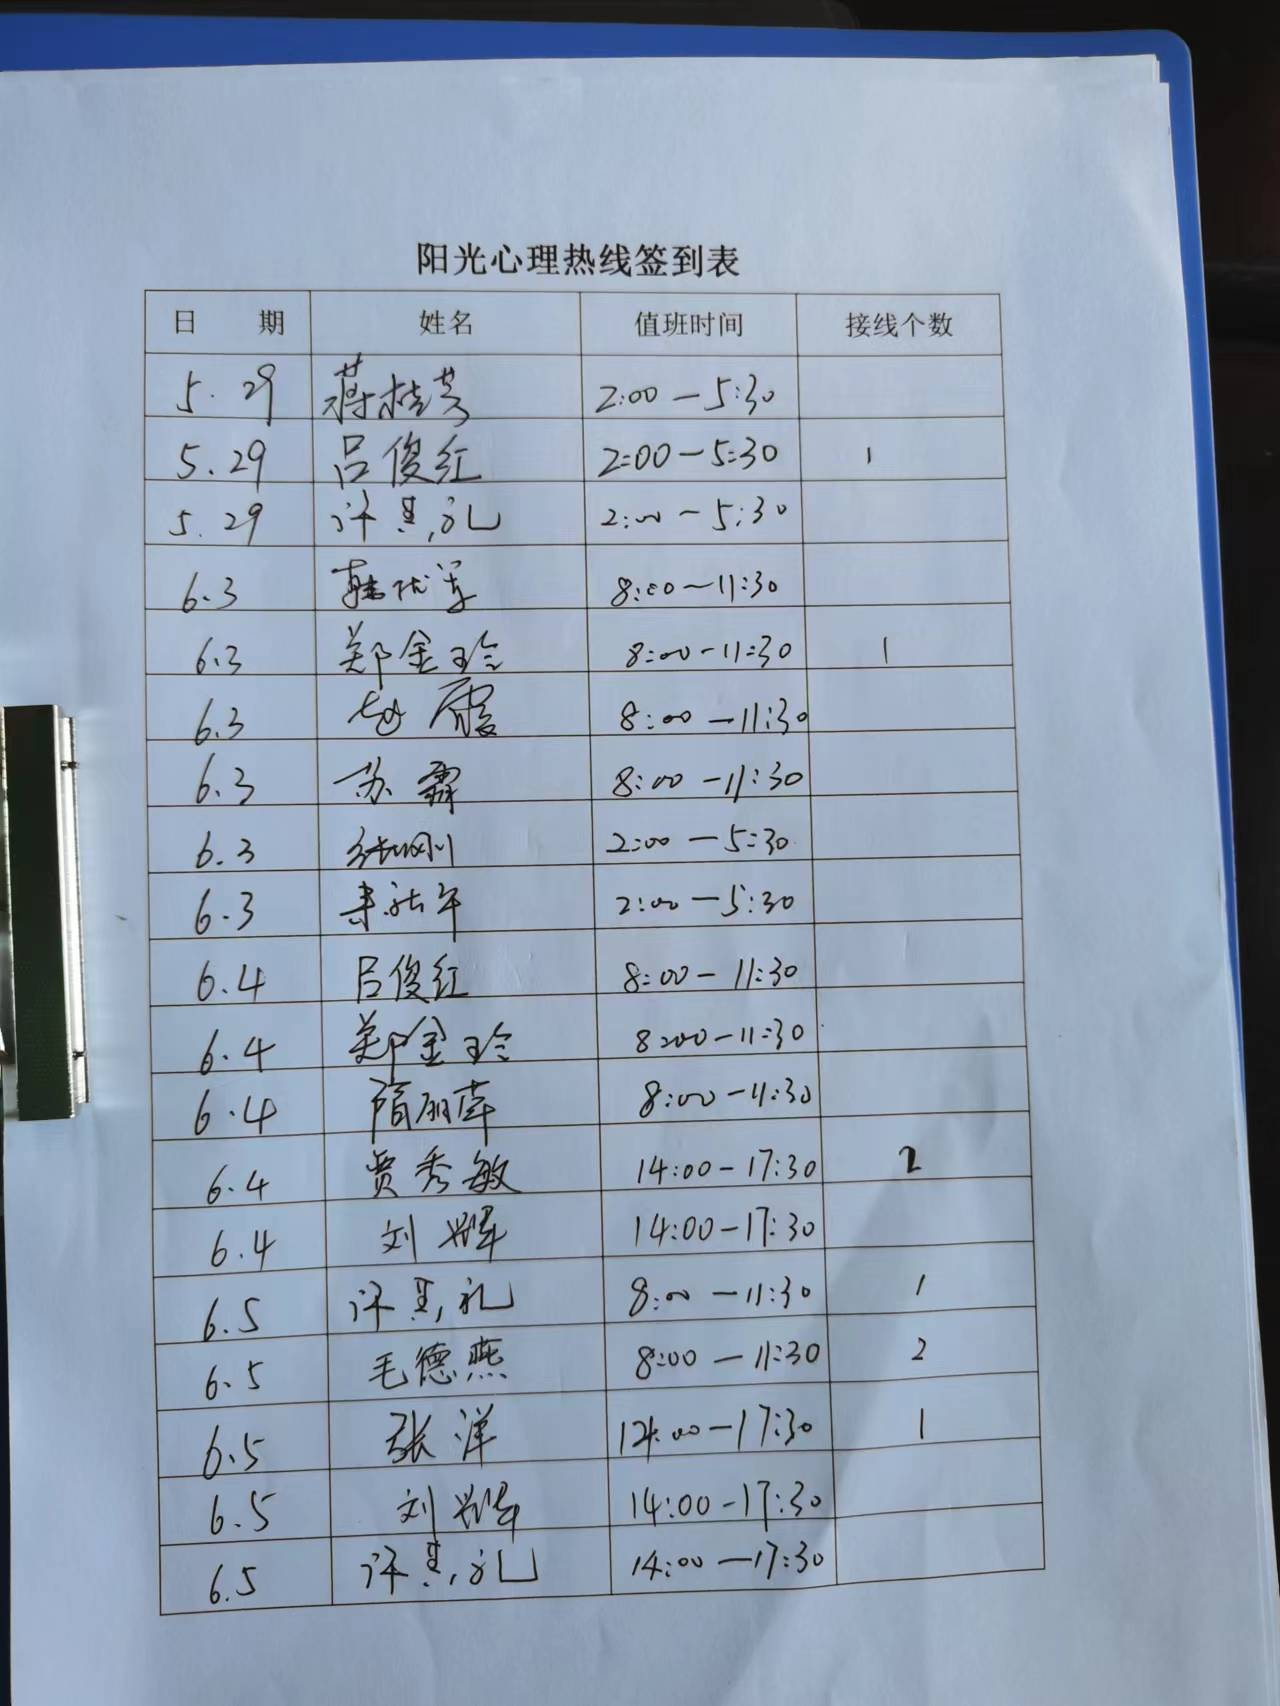 阳光心理热线签到表
日 期 姓名 值班时间 接线个数
5.29 蒋桂芳 2:00-5:30
5.29 吕俊红 2:00-5:30 1
5.29 许 礼 2:00-5:30
6.3 韩 军 8:00-11:30
6.3 郑金玲 8:00-11:30 1
6.3 赵霞 8:00-11:30
6.3 苏霖 8:00-11:30
6.3 张刚 2:00-5:30
6.3 年 2:00-5:30
6.4 吕俊红 8:00-11:30
6.4 郑金玲 8:00-11:30
6.4 隋丽萍 8:00-11:30
6.4 贾秀敏 14:00-17:30 2
6.4 刘 辉 14:00-17:30
6.5 许 礼 8:00-11:30 1
6.5 毛德燕 8:00-11:30 2
6.5 张洋 14:00-17:30 1
6.5 刘 辉 14:00-17:30
6.5 许 礼 14:00-17:30